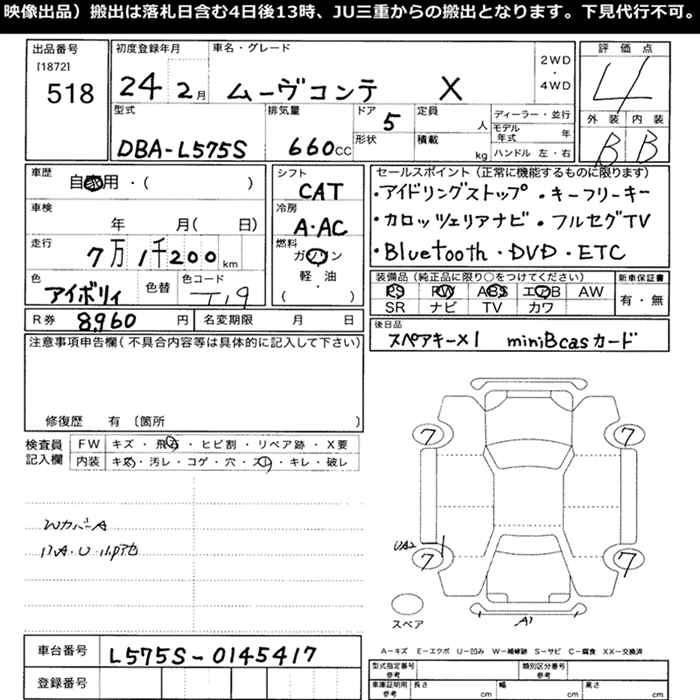 映像出品）搬出は落札日含む4日後13時、JU三重からの搬出となります。下見代行不可。
出品番号
[1872]
518
初度登録年月
24 2月
車名・グレード
ムーヴコンテ X
2WD
・
4WD
評価点
4
外装 内装
B B
型式
DBA-L575S
排気量
660cc
ドア
5
形状
定員
人
積載
kg
ディーラー・並行
モデル年式 年
ハンドル 左・右
車歴
自家用・( )
車検
年 月( 日)
走行
7万1千200km
色
アイボリィ
色替
色コード
T19
シフト
CAT
冷房
A・AC
燃料
ガソリン
軽・油
( )
セールスポイント（正常に機能するものに限ります）
・アイドリングストップ ・キーフリーキー
・カロッツェリアナビ ・フルセグTV
・Bluetooth・DVD・ETC
装備品（純正品に限り○をつけてください）
PS PW ABS エアB AW
SR ナビ TV カワ
新車保証書
有・無
R券 8,960円
名変期限 月 日
後日品
スペアキー×1 miniBcasカード
注意事項申告欄（不具合内容等は具体的に記入して下さい）
修復歴 有〔箇所 〕
検査員
記入欄
FW キズ・飛石・ヒビ割・リペア跡・X要
内装 キズ・汚レ・コゲ・穴・スレ・キレ・破レ
WカバーA
7
7
7
7
UA2
A1
スペア
A－キズ E－エクボ U－凹み W－補修跡 S－サビ C－腐食 XX－交換済
車台番号 L575S-0145417
登録番号
型式指定番号
参考
類別区分番号
参考
車庫証明用
参考
長さ cm
幅 cm
高さ cm